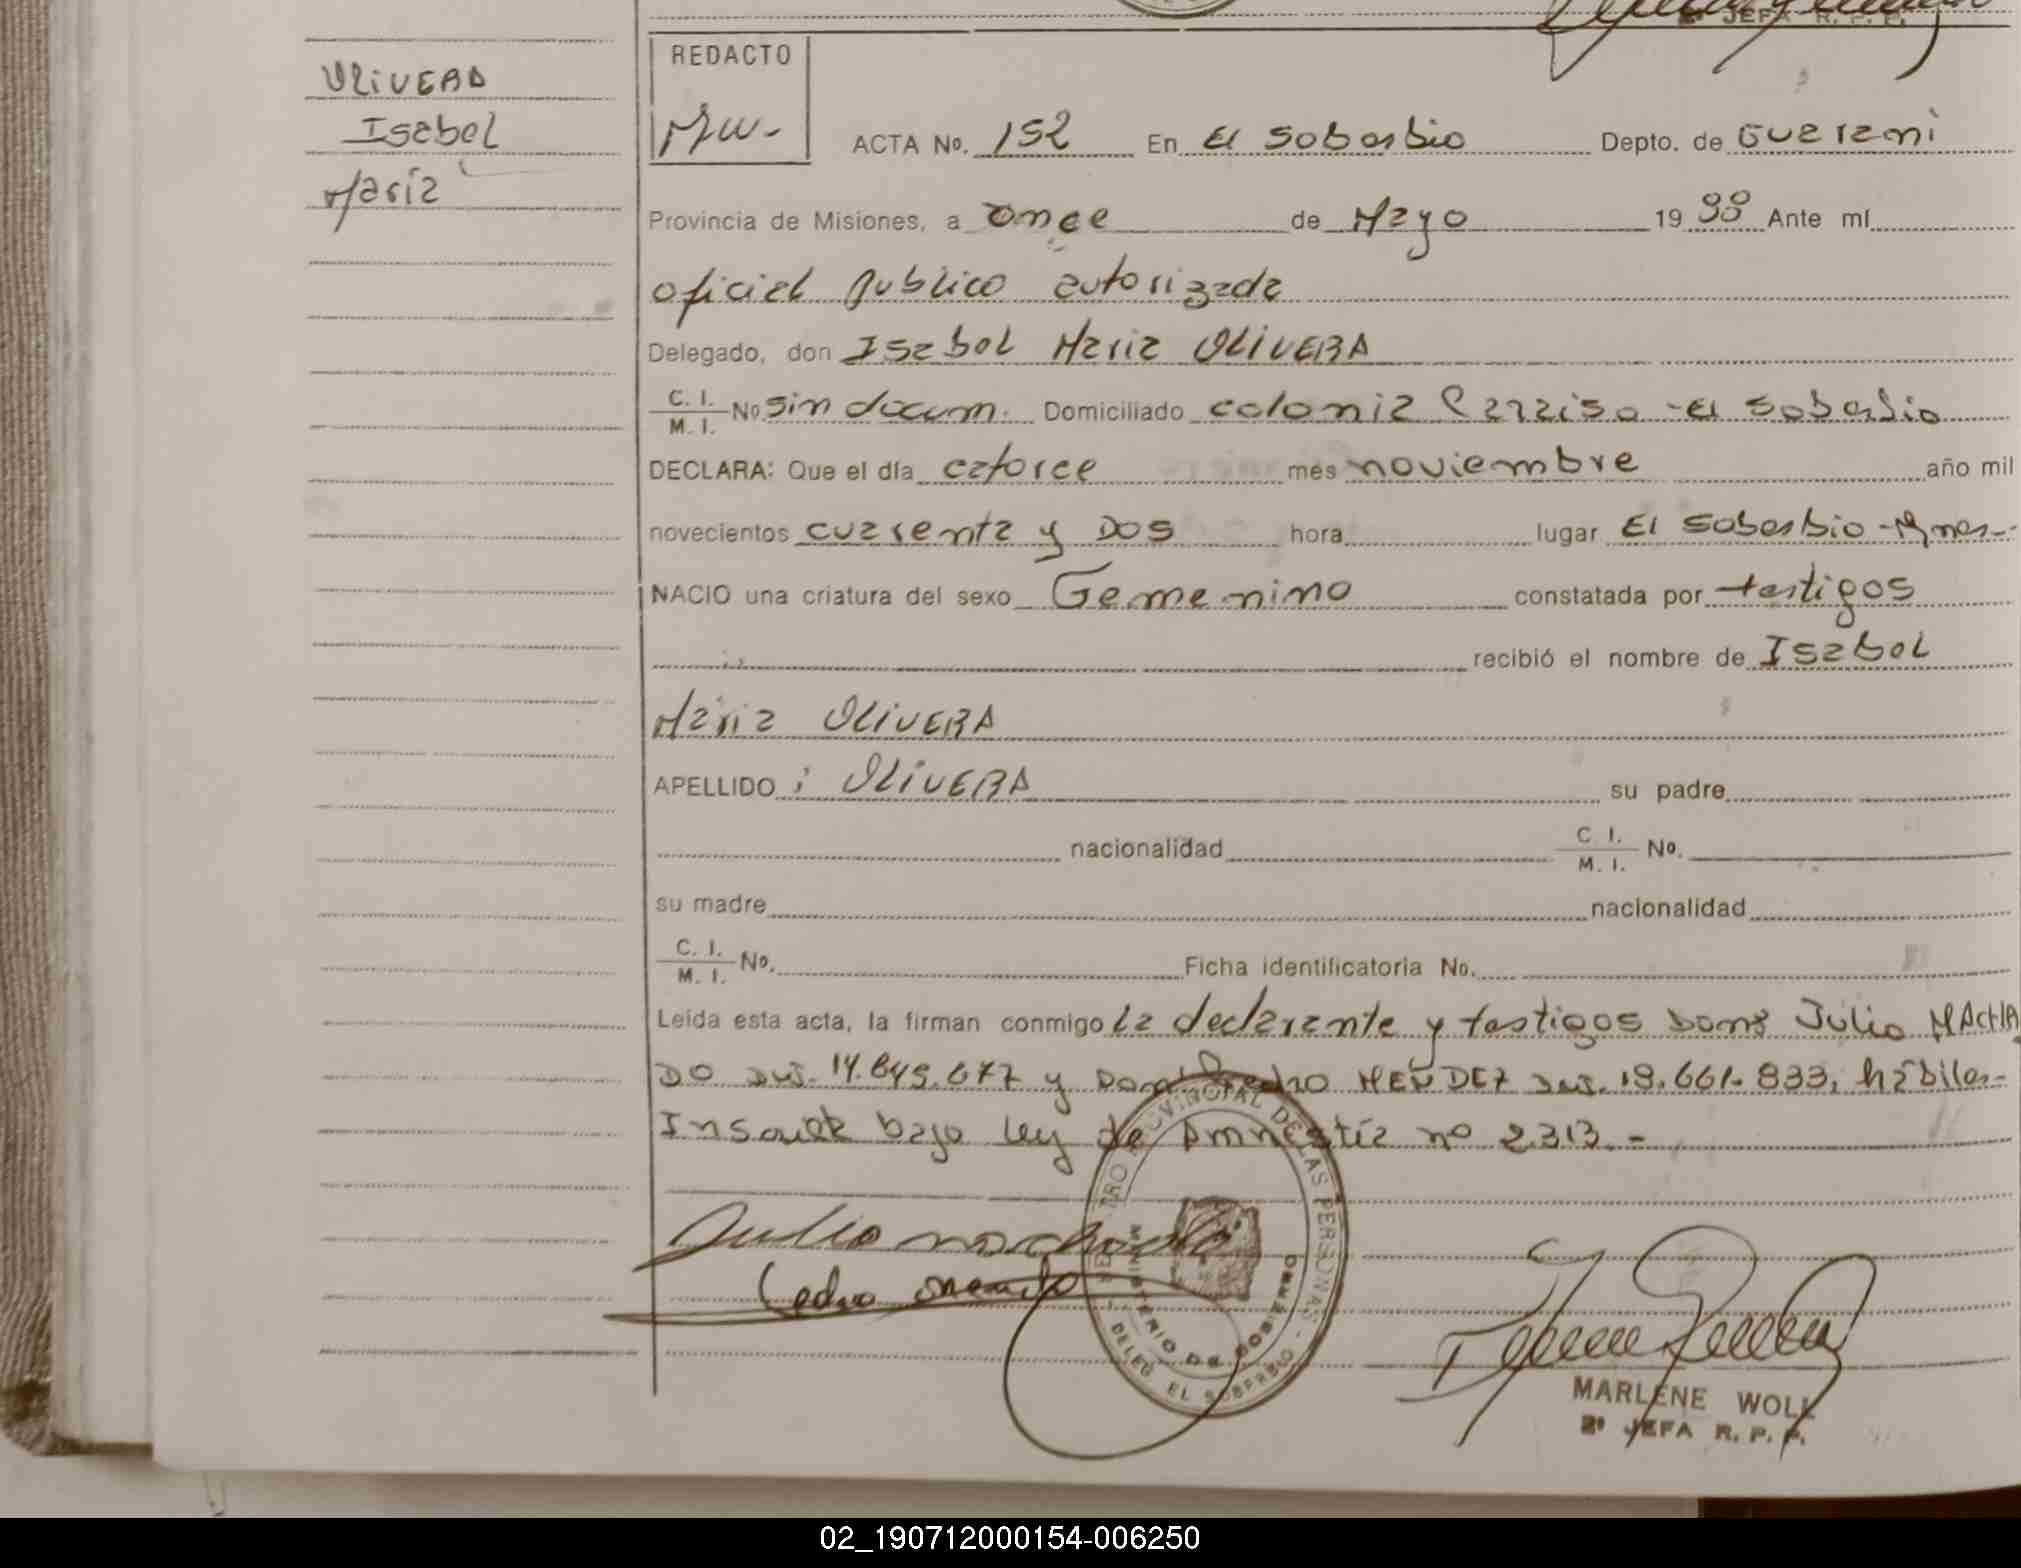 2º JEFA R. P. P.
REDACTO
OLIVERA
Isabel
María
ACTA No. 152 En El Soberbio Depto. de Guaraní
Provincia de Misiones, a once de Mayo 19 Ante mí
oficial publico autorizada
Delegado, don Isabel Maria OLIVERA
C. I. / M. I. No. sin docum. Domiciliado colonia Paraiso - El Soberbio
DECLARA: Que el día catorce mes noviembre año mil
novecientos cuarenta y DOS hora lugar El Soberbio - Mnes-
NACIO una criatura del sexo Femenino constatada por testigos
recibió el nombre de Isabel
Maria OLIVERA
APELLIDO : OLIVERA su padre
nacionalidad C. I. / M. I. No.
su madre nacionalidad
C. I. / M. I. No. Ficha identificatoria No.
Leída esta acta, la firman conmigo la declarante y testigos Dons Julio MACHA
DO DNI. y Don Pedro MENDEZ DNI. 18.661.833, hábiles-
bajo ley de Amnestía nº 2313.-
Julio machado
Pedro
REGISTRO PROVINCIAL DE LAS PERSONAS - DELEG. EL SOBERBIO -
MINISTERIO DE GOBIERNO
MARLENE WOLL
2º JEFA R. P. P.
02_190712000154-006250